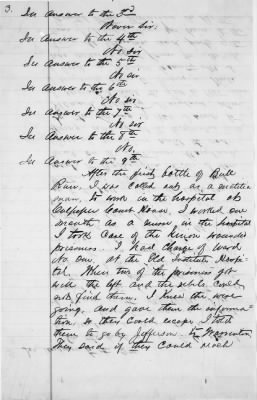 3.
In Answer to the 3rd
Never Sir.
In Answer to the 4th
No Sir
In Answer to the 5th
No sir
In Answer to the 6th
No sir
In Answer to the 7th
No sir
In Answer to the 8th
No.
In Answer to the 9th
After the first battle of Bull
Run, I was called out, as a militia
man, to work in the hospital at
Culpeper Court House, I worked one
month as a nurse in the hospital
I took Care of the Union wounded
prisoners. I had Charge of Ward
No. One, at the Old Institute Hospi-
tal. When two of the prisoners got
well they left and the rebels Could
not find them, I knew they were
going, and gave them the informa-
tion, so they Could escape I told
them to go by Jefferson to Warrenton
They said if they Could reach